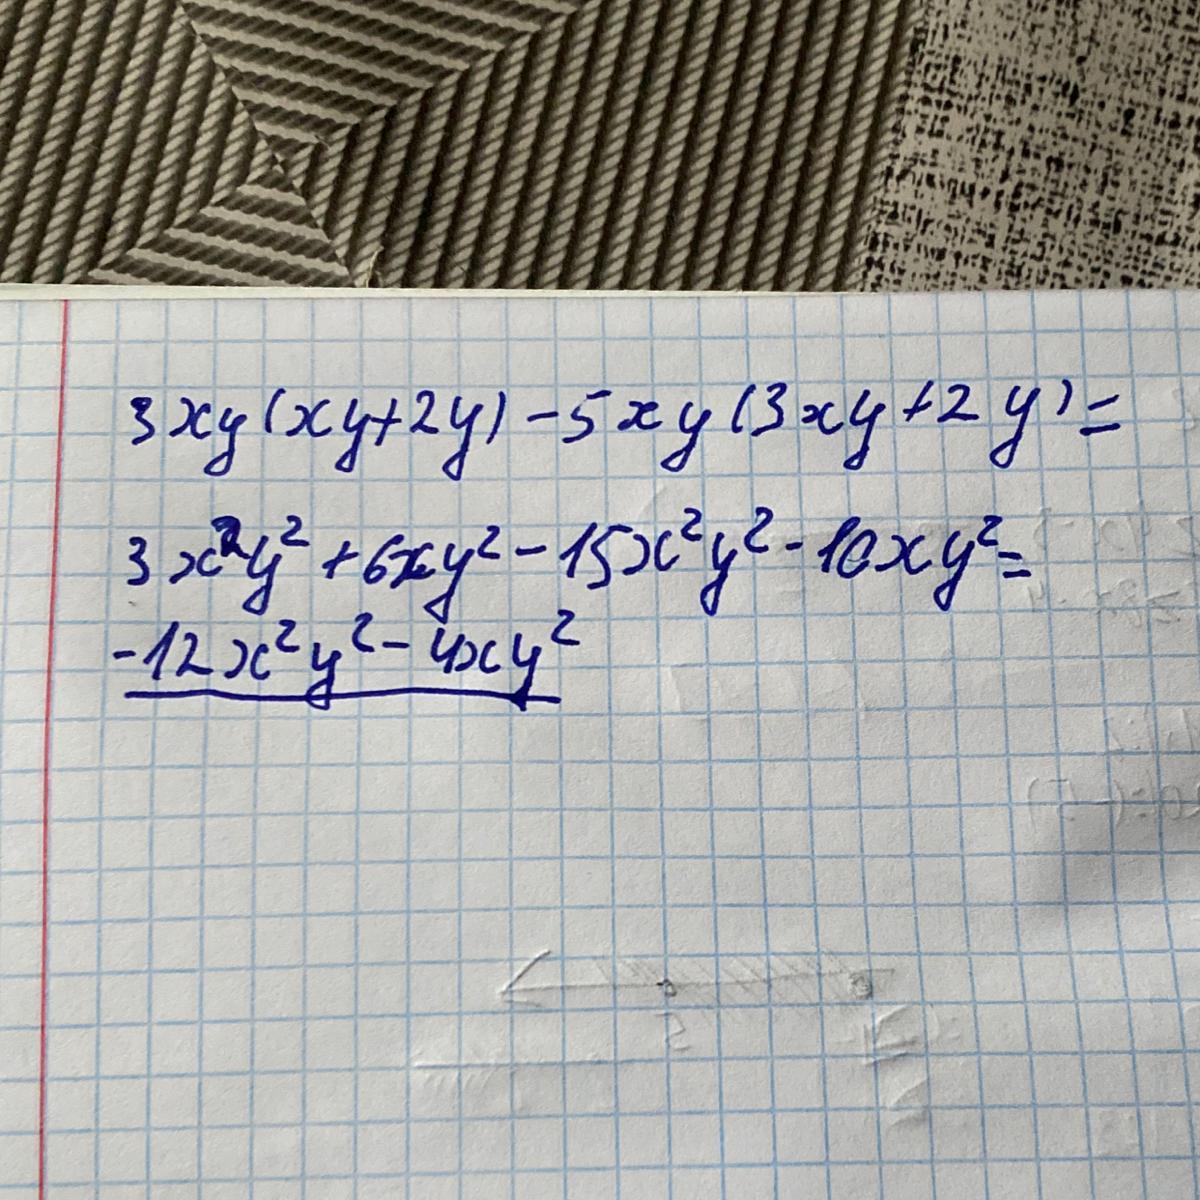 3xy(xy+2y)-5xy(3xy+2y)=
3x²y²+6xy²-15x²y²-10xy²=
-12x²y²-4xy²